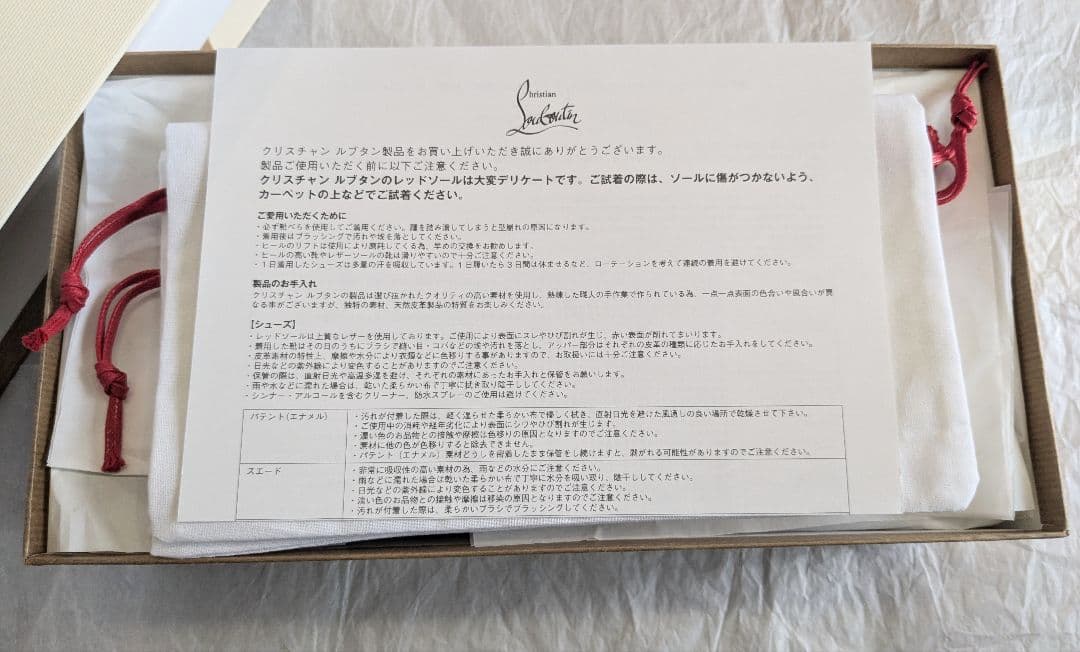 Christian
Louboutin
クリスチャン ルブタン製品をお買い上げいただき誠にありがとうございます。
製品ご使用いただく前に以下ご注意ください。
クリスチャン ルブタンのレッドソールは大変デリケートです。ご試着の際は、ソールに傷がつかないよう、
カーペットの上などでご試着ください。
ご愛用いただくために
・必ず靴べらを使用してご着用ください。踵を踏み潰してしまうと型崩れの原因になります。
・着用後はブラッシングで汚れや埃を落としてください。
・ヒールのリフトは使用により磨耗してくる為、早めの交換をお勧めします。
・ヒールの高い靴やレザーソールの靴は滑りやすいので十分ご注意ください。
・1日着用したシューズは多量の汗を吸収しています。1日履いたら3日間は休ませるなど、ローテーションを考えて連続の着用を避けてください。
製品のお手入れ
クリスチャン ルブタンの製品は選び抜かれたクオリティの高い素材を使用し、熟練した職人の手作業で作られている為、一点一点表面の色合いや風合いが異
なる事がございますが、独特の素材、天然皮革製品の特質をお楽しみください。
【シューズ】
・レッドソールは上質なレザーを使用しております。ご使用により表面にスレやひび割れが生じ、赤い表面が削れてまいります。
・着用した靴はその日のうちにブラシで縫い目・コバなどの埃や汚れを落とし、アッパー部分はそれぞれの皮革の種類に応じたお手入れをしてください。
・皮革素材の特性上、摩擦や水分により衣類などに色移りする事がありますので、お取扱いには十分ご注意ください。
・日光などの紫外線により変色することがありますのでご注意ください。
・保管の際は、直射日光や高温多湿を避け、それぞれの素材にあったお手入れと保管をお願いします。
・雨や水などに濡れた場合は、乾いた柔らかい布で丁寧に拭き取り陰干ししてください。
・シンナー・アルコールを含むクリーナー、防水スプレーのご使用は避けてください。
パテント(エナメル)
・汚れが付着した際は、軽く湿らせた柔らかい布で優しく拭き、直射日光を避けた風通しの良い場所で乾燥させて下さい。
・ご使用中の消耗や経年劣化により表面にシワやひび割れが生じます。
・濃い色のお品物との接触や摩擦は色移りの原因となりますのでご注意ください。
・素材に他の色が色移りすると除去できません。
・パテント（エナメル）素材どうしを密着したまま保管をし続けますと、剥がれる可能性がありますのでご注意ください。
スエード
・非常に吸収性の高い素材の為、雨などの水分にご注意ください。
・雨などに濡れた場合は乾いた柔らかい布で丁寧に水分を吸い取り、陰干ししてください。
・日光などの紫外線により変色することがありますのでご注意ください。
・淡い色のお品物との接触や摩擦は移染の原因となりますのでご注意ください。
・汚れが付着した際は、柔らかいブラシでブラッシングしてください。